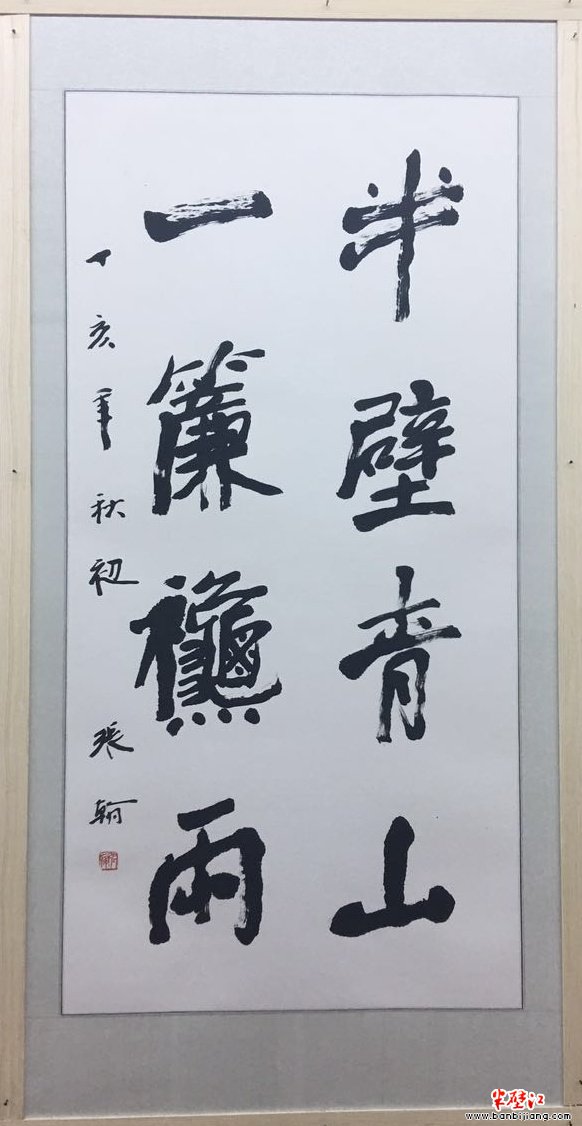 半壁青山
一簾龝雨
丁亥年秋初 張翰
半壁江
www.banbijiang.com